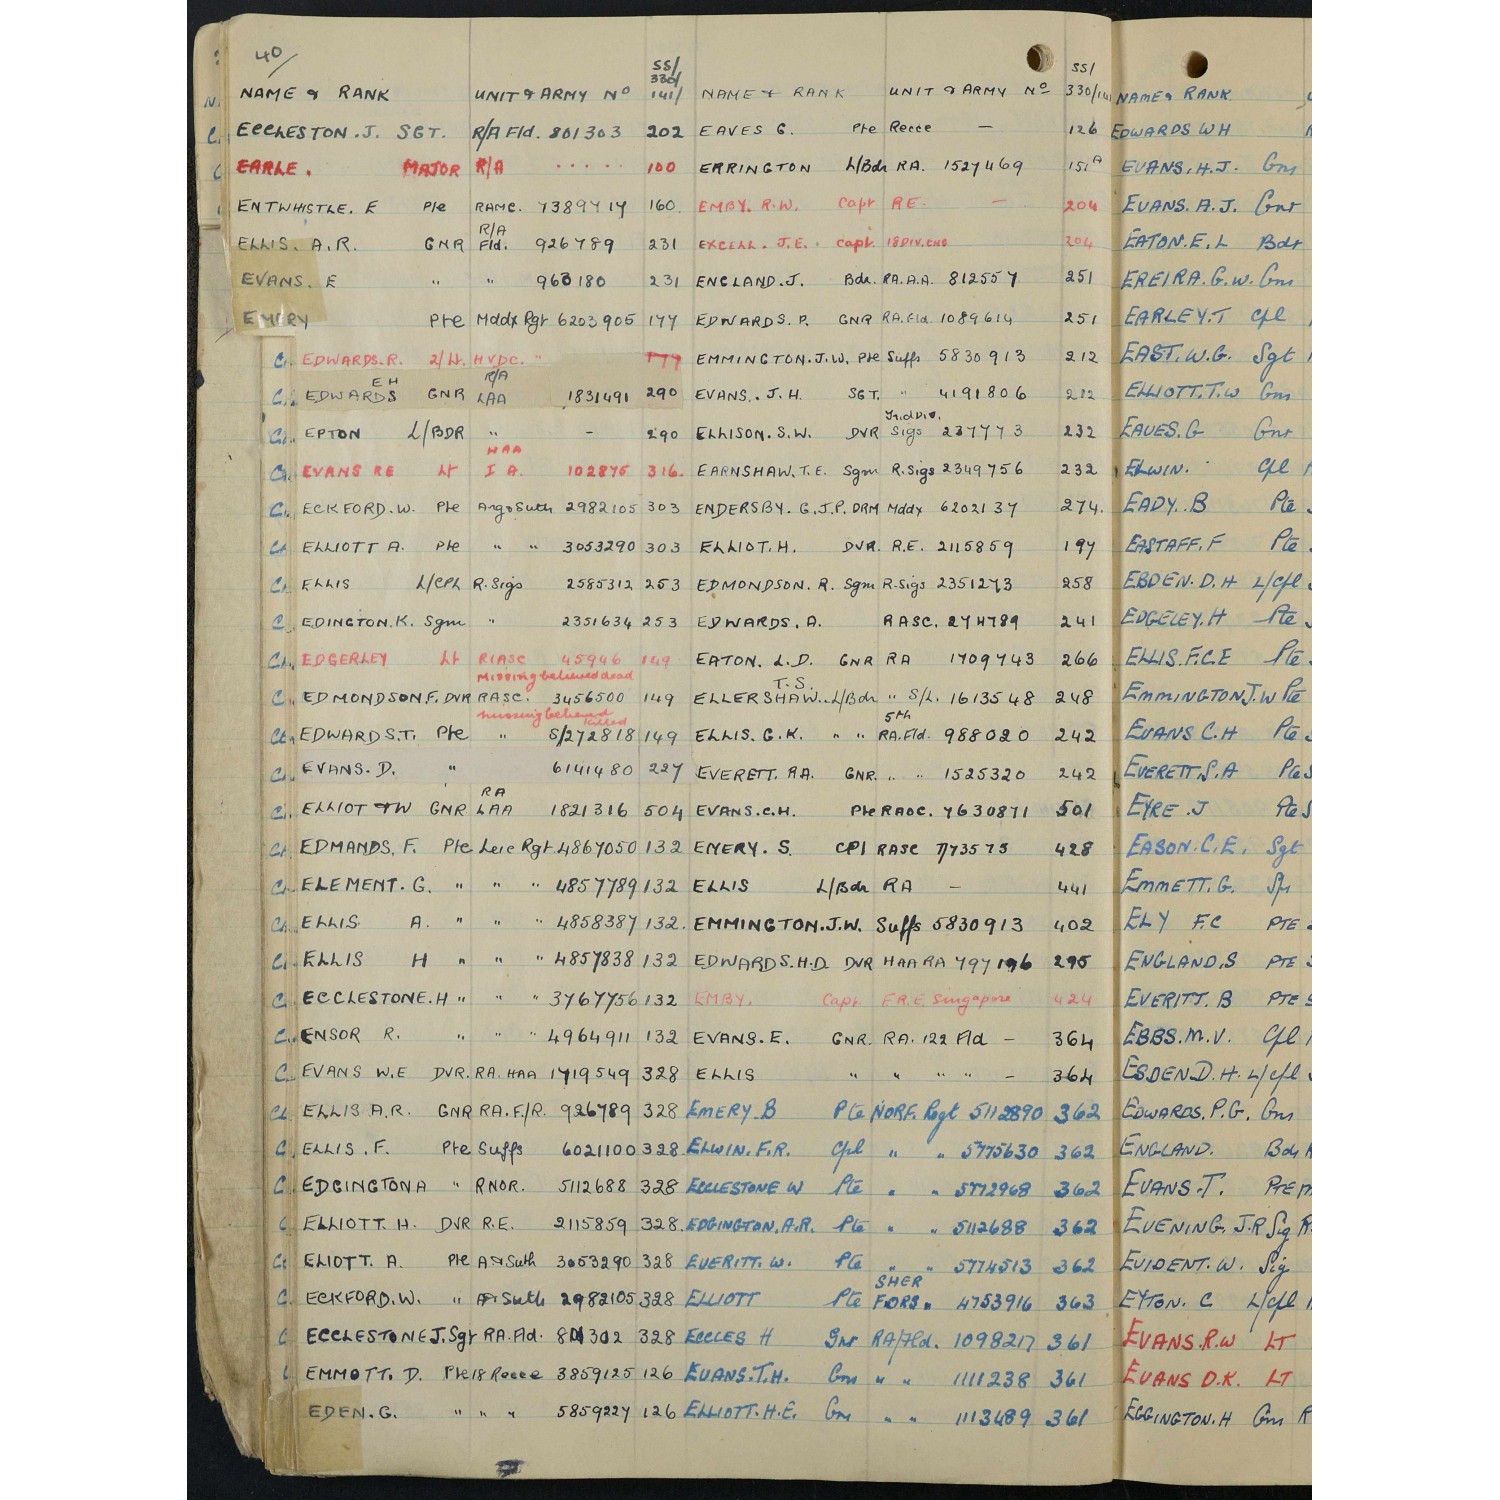 40/
NAME & RANK UNIT & ARMY Nº SS/330/141/
ECCLESTON. J. SGT. R/A Fld. 801303 202
EARLE. MAJOR R/A ..... 100
ENTWHISTLE. E Pte RAMC. 7389717 160
ELLIS. A.R. GNR R/A Fld. 926789 231
EVANS. E " " 963180 231
EMERY Pte Mddx Rgt 6203905 177
EDWARDS. R. 2/Lt. HVDC. " 177
EDWARDS EH GNR R/A LAA 1831491 290
EPTON L/BDR " - 290
EVANS RE Lt HAA I A. 102875 316.
ECKFORD. W. Pte Argo Suth 2982105 303
ELLIOTT A. Pte " " 3053290 303
ELLIS L/CPL R. Sigs 2585312 253
EDINGTON. K. Sgm " 2351634 253
EDGERLEY Lt RIASC 45946 149
Missing believed dead
EDMONDSON F. DVR RASC. 3456500 149
missing believed killed
EDWARDS. T. Pte " S/272818 149
EVANS. D. " 6141480 227
ELLIOT TW GNR RA LAA 1821316 504
EDMANDS. F. Pte Leic Rgt 4867050 132
ELEMENT. G. " " " 4857789 132
ELLIS A. " " " 4858387 132.
ELLIS H " " " 4857838 132
ECCLESTONE. H " " " 3767756 132
ENSOR R. " " " 4964911 132
EVANS W.E DVR. RA. HAA 1719549 328
ELLIS A.R. GNR RA. F/R. 926789 328
ELLIS. F. Pte Suffs 6021100 328
EDGINGTON A " RNOR. 5112688 328
ELLIOTT. H. DVR R.E. 2115859 328.
ELIOTT. A. Pte A&Suth 3053290 328
ECKFORD. W. " A&Suth 2982105 328
ECCLESTONE J. Sgt RA. Fld. 801302 328
EMMOTT. D. Pte 18 Recce 3859125 126
EDEN. G. " " " 5859227 126
NAME & RANK UNIT & ARMY Nº SS/330/141
EAVES G. Pte Recce - 126
ERRINGTON L/Bdr RA. 1527469 151A
EMBY. R.W. Capt RE. - 204
EXCELL. J.E. Capt 18 DIV. 204
ENGLAND. J. Bdr. RA. A.A. 812557 251
EDWARDS. P. GNR RA. Fld 1089614 251
EMMINGTON. J.W. Pte Suffs 5830913 212
EVANS. J.H. SGT. " 4191806 212
ELLISON. S.W. DVR Sigs 237773 232
EARNSHAW. T.E. Sgm R. Sigs 2349756 232
ENDERSBY. G.J.P. DRM Mddx 6202137 274.
ELLIOT. H. DVR. R.E. 2115859 197
EDMONDSON. R. Sgm R. Sigs 2351273 258
EDWARDS. A. RASC. 274789 241
EATON. L.D. GNR RA 1709743 266
ELLERSHAW. T.S. L/Bdr " S/L. 1613548 248
ELLIS. G.K. " " 5th RA. Fld. 988020 242
EVERETT. RA. GNR. " " 1525320 242
EVANS. C.H. Pte RAOC. 7630871 501
EMERY. S. CPl RASC T/73575 428
ELLIS L/Bdr RA - 441
EMMINGTON. J.W. Suffs 5830913 402
EDWARDS. H.D DVR HAA RA 797196 295
EMBY. Capt F.R.E. Singapore 424
EVANS. E. GNR. RA. 122 Fld - 364
ELLIS " " " " - 364
EMERY B Pte NORF. Regt 5112890 362
ELWIN. F.R. Cpl " " 5775630 362
ECCLESTONE W Pte " " 5772968 362
EDGINGTON. A.R. Pte " " 5112688 362
EVERITT. W. Pte " " 5774513 362
ELLIOTT Pte SHER FORS. " 4753916 363
ECCLES H Gnr RA/Fld. 1098217 361
EVANS. T.H. Gnr " " 1111238 361
ELLIOTT. H.E. Gnr " " 1113489 361
NAME & RANK
EDWARDS WH
EVANS. H.J. Gnr
EVANS. A.J. Gnr
EATON. E.L Bdr
EREIRA. G.W. Gnr
EARLEY. T Cpl
EAST. W.G. Sgt
ELLIOTT. T.W Gnr
EAVES. G Gnr
ELWIN. Cpl
EADY. B Pte
EASTAFF. F Pte
EBDEN. D.H L/Cpl
EDGELEY. H Pte
ELLIS. F.C.E Pte
EMMINGTON J.W Pte
EVANS C.H Pte
EVERETT. S. A Pte
EYRE. J Pte
EASON. C.E. Sgt
EMMETT. G. Spr
ELY F.C PTE
ENGLAND. S PTE
EVERITT. B PTE
EBBS. M.V. Cpl
ESDEN D.H. L/Cpl
EDWARDS. P.G. Gnr
ENGLAND. Bdr
EVANS. T. PTE
EVENING. J.R Sig
EVIDENT. W. Sig
EYTON. C L/Cpl
EVANS. R.W LT
EVANS D.K. LT
EGGINGTON. H Gnr